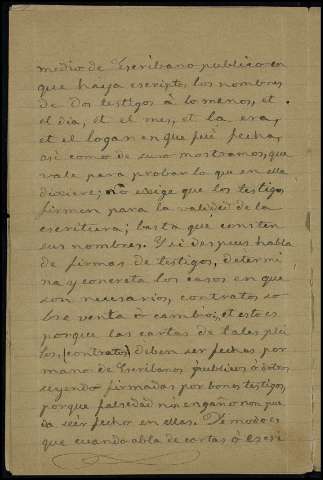 medio de Escribano publico en
que haya escriptos los nombres
de dos testigos à lo menos, et
el dia, et el mes, et la era,
et el logar en que fué fecha,
asi como de suso mostramos, que
vale para probar lo que en ella
dixiere; No exige que los testigos
firmen para la validéd de la
escritura; basta que consten
sus nombres. Y si despues habla
de firmas de testigos, determi
na y concreta los casos en que
son necesarios, contratos so
bre venta ó cambio; et esto es
porque las cartas de tales plei
tos, (contratos) deben ser fechas por
mano de Escribanos publicos ó otros
seyendo firmadas por bonos testigos,
porque falsedad nin engaño non pue
da ser fecho en ellas. De modo es
que cuando abla de cartas ó escri